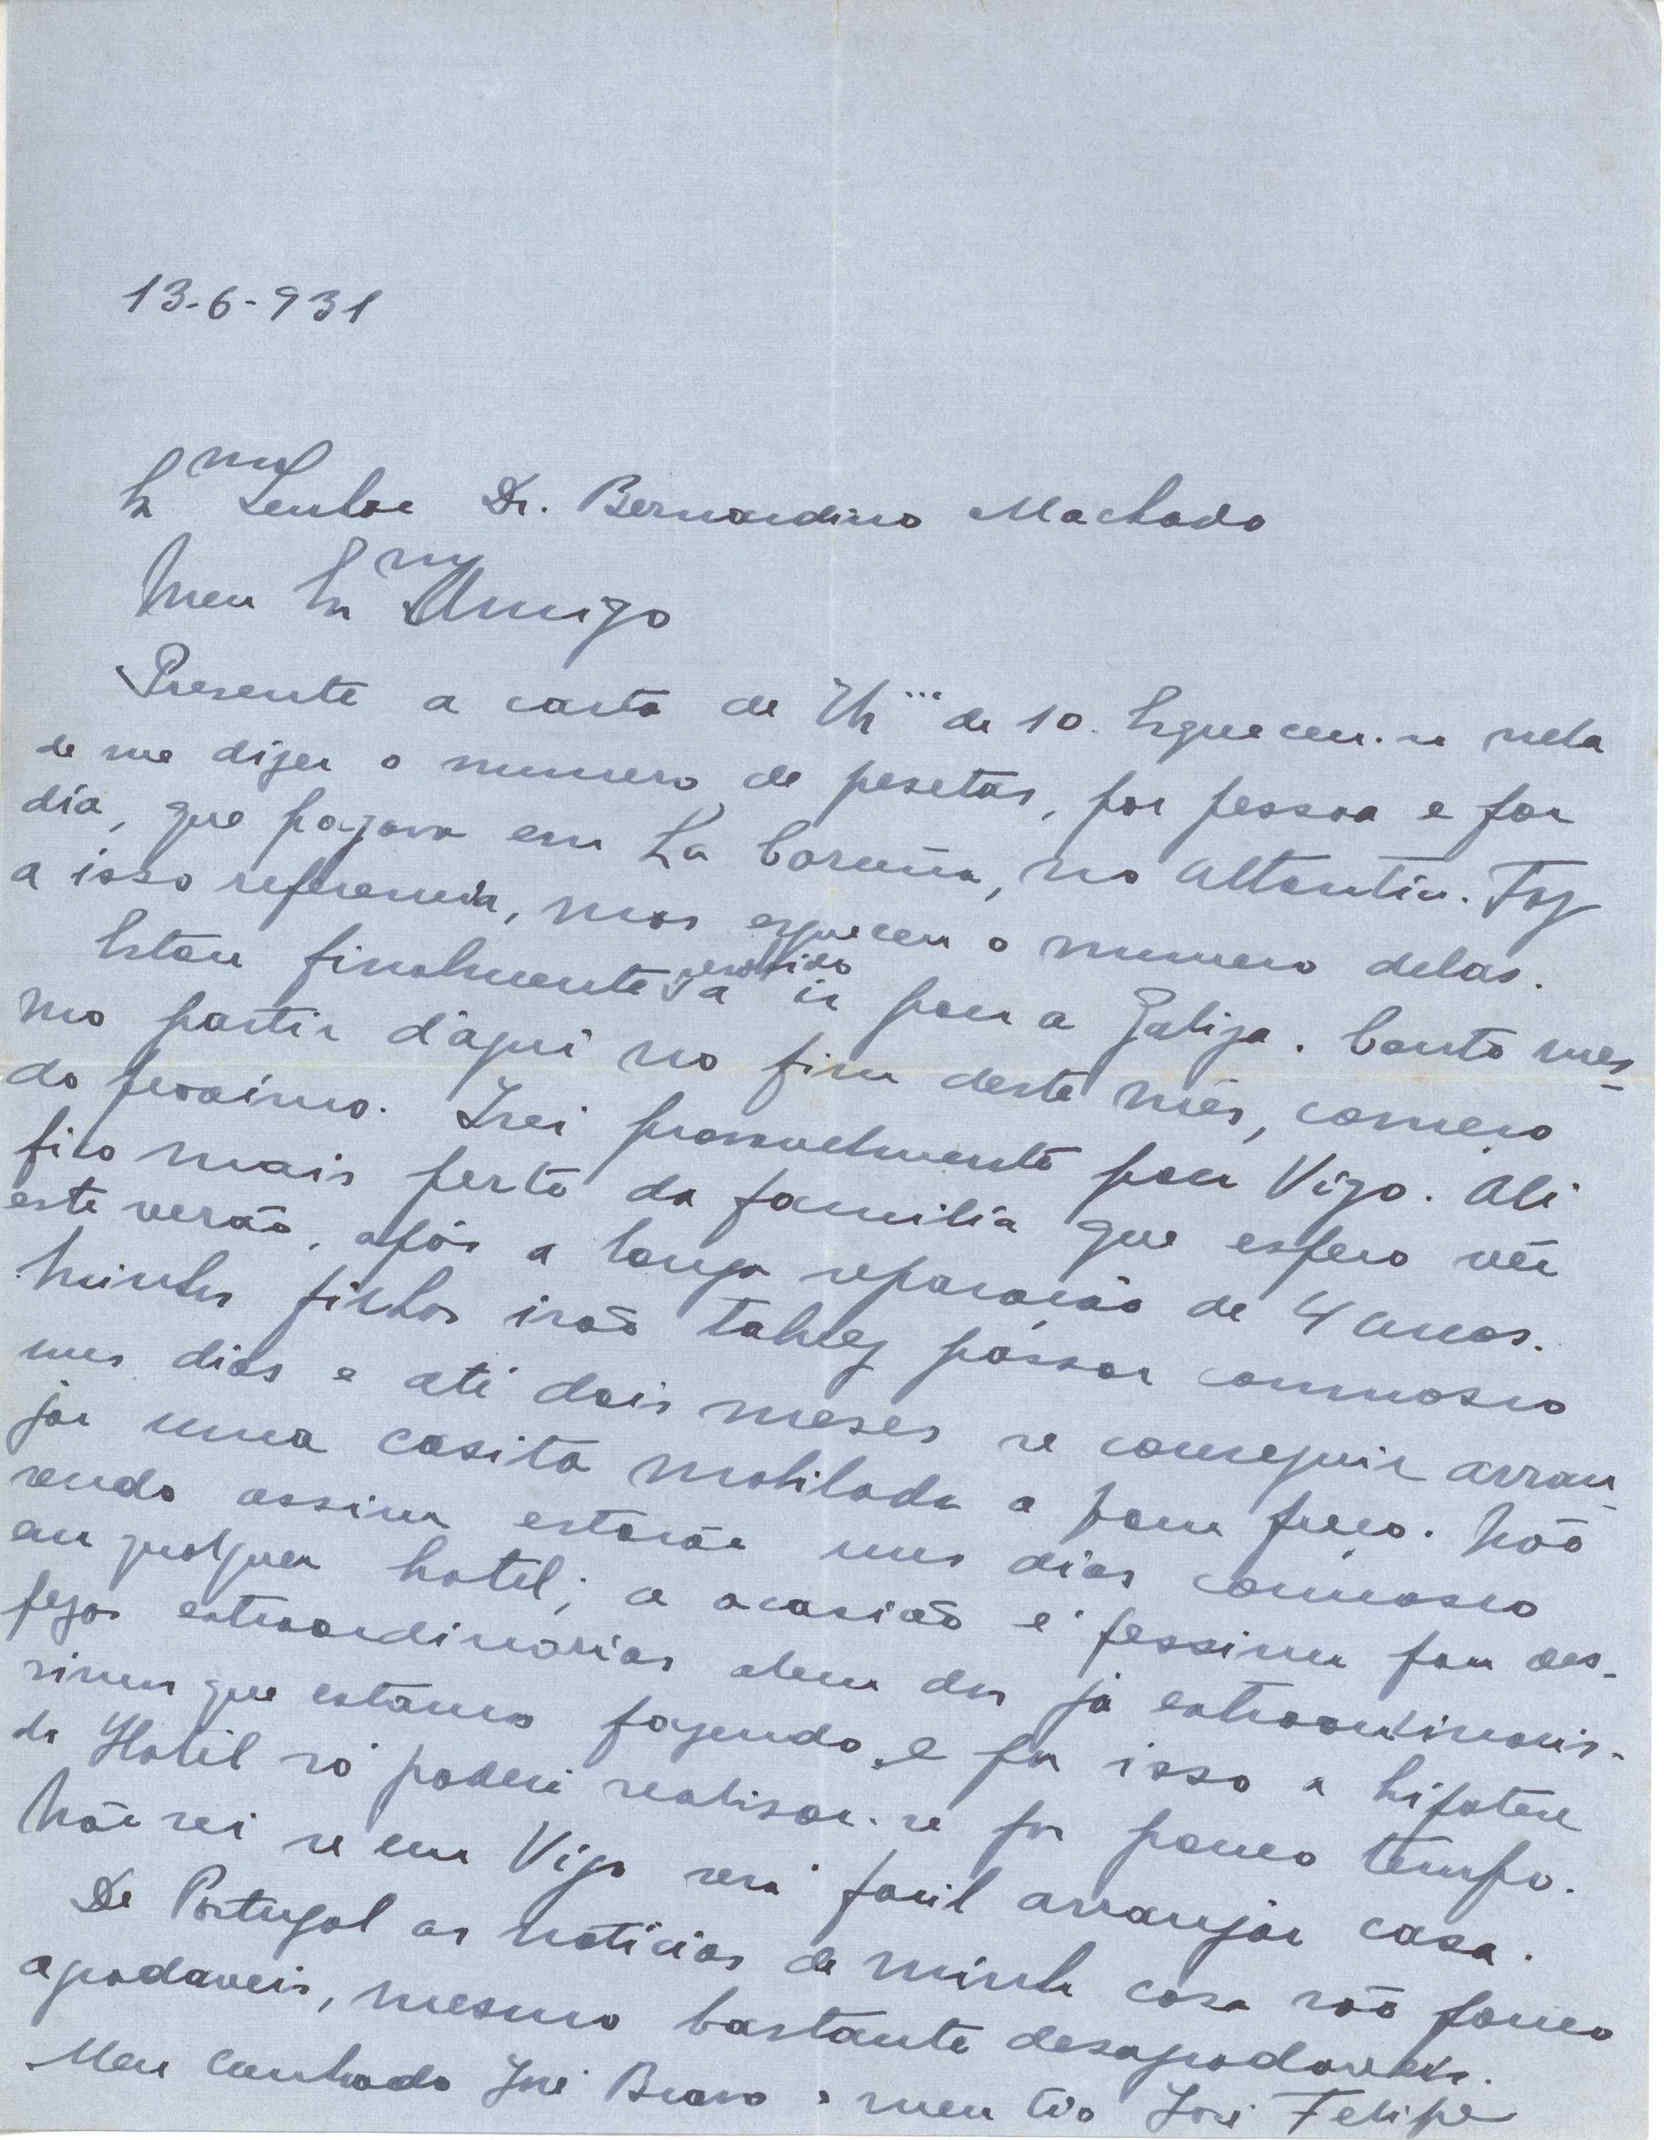 13-6-931
Exmo Senhor Dr. Bernardino Machado
Meu Exmo Amigo
Presente a carta de V. Ex.ª de 10. Esqueceu-se nela
de me dizer o numero de pesetas, por pessoa e por
dia, que pagava em La Coruña, no Atlantic. Faz
a isso referencia, mas esqueceu o numero delas.
Estou finalmente resolvido a ir para a Galiza. Conto mes-
mo partir d'aqui no fim deste mês, começo
do proximo. Irei provavelmente para Vigo. Ali
fico mais perto da familia que espero vêr
este verão, após a longa separação de 4 anos.
Minhas filhas irão talvez passar comnosco
uns dias e até dois meses se conseguir arran-
jar uma casita mobilada a bom preço. Não
sendo assim estarão uns dias comnosco
em qualquer hotel; a ocasião é pessima para des-
pezas extraordinarias alem das já extraordinaris-
simas que estamos fazendo e por isso a hipotese
do Hotel só poderá realisar-se por pouco tempo.
Não sei se em Vigo será facil arranjar casa.
De Portugal as noticias de minha casa são pouco
agradaveis, mesmo bastante desagradaveis.
Meu cunhado José Bravo e meu tio José Felipe